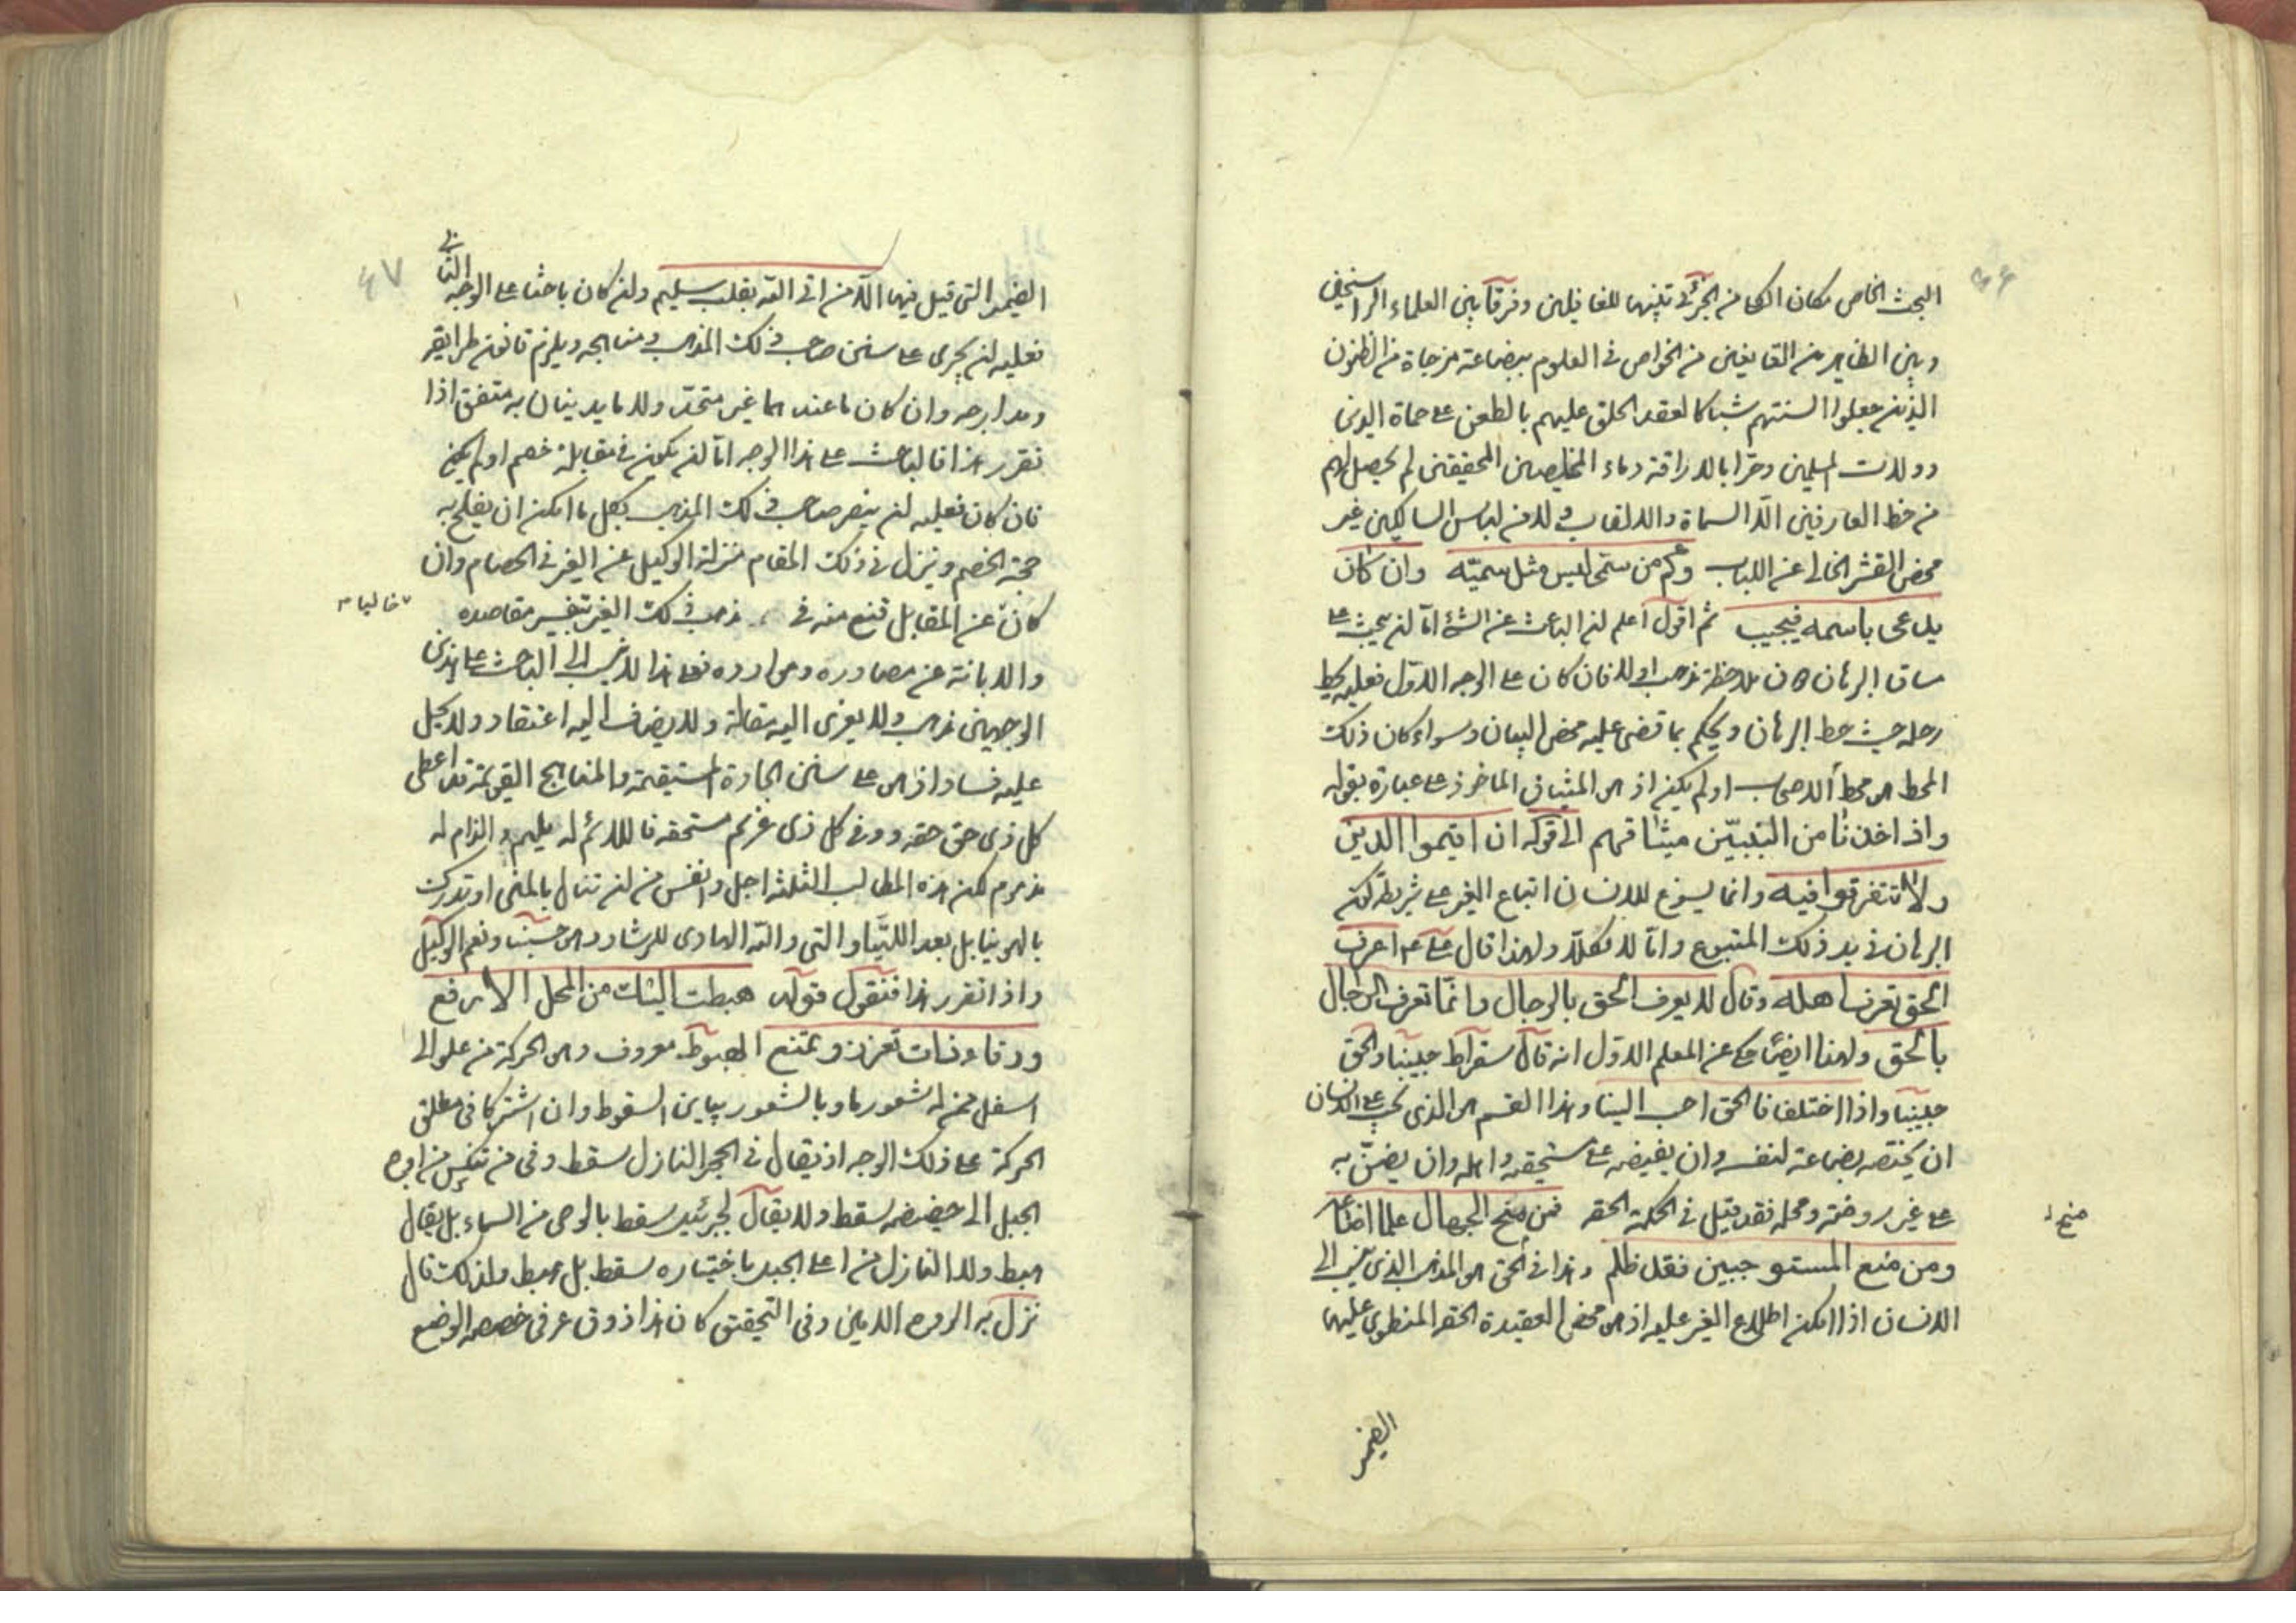 ٤٦
البحث الخاص مكان الكامن الجزئى تنبيها للغافلين وفرقاً بين العلماء الراسخين
وبين الظاهر من القانعين من الخواص فى العلوم ببضاعة مزجاة من الظنون
الذين جعلوا السنتهم شباكا لعقد الحلق عليهم بالطعن على حماة الدين
وولات المسلمين وحقرا بالاراقة دماء المخلصين المحققين لم يحصل لهم
من حظ العارفين الا السماة والالقاب ولا من لباس السالكين غير
محض القشر الخالى عن اللباب وكم من سمى ليس مثل سميّه وان كان
يدعى باسمه فيجيب ثم اقول اعلم ان الباحث عن الشئ اما ان يبحث على
ساق البرهان دون ملاحظة مذهب اولا فان كان على الوجه الاول فعليه يحط
رحله حيث حط البرهان ويحكم بما قضى عليه محض البيان وسواء كان ذلك
المحط هو محط الاصحاب او لم يكن اذ هو الميثاق الماخوذ على عباده بقوله
واذ اخذنا من النبيّين ميثاقهم الى قوله ان اقيموا الدين
ولا تتفرقوا فيه وانما يسوغ للانسان اتباع الغير على شريطة كون
البرهان فى يد ذلك المتبوع واما لا فكلا ولهذا قال على عم اعرف
الحق تعرف اهله وقال لا يعرف الحق بالرجال وانما تعرف الرجال
بالحق ولهذا ايضا حكى عن المعلم الاول انه قال سقراط حبيبنا والحق
حبيبنا واذا اختلفا فالحق احب الينا وهذا القسم هو الذى يجب على الانسان
ان يختصه بضاعة لنفسه وان يفيضه على مستحقه واهله وان يضنّ به
على غير روضته ومحله فقد قيل فى الحكمة الحقه فمن منح الجهال علما اضاعه
منح
ومن منع المستوجبين فقد ظلم وهذا فى الحق هو المذهب الذى ينسب الى
الانسان اذا امكن اطلاع الغير عليه اذ هو محض العقيدة الحقه المنطوى عليها
الضمير
٤٧
الضمير التى قيل فيها الا من اتى الله بقلب سليم وان كان باحثا على الوجه الثانى
فعليه ان يجرى على سنن صاحب ذلك المذهب ومناهجه ويلزم قانون طرايقه
ومدارجه وان كان ما عندهما غير متحد ولا ما يدينان به متفق اذا
تقرر هذا فالباحث على هذا الوجه اما ان يكون فى مقابلة خصم او لم يكن
فان كان فعليه ان ينصر صاحب ذلك المذهب بكل ما امكن ان يفلح به
حجة الخصم وينزل فى ذلك المقام منزلة الوكيل عن الغير فى الخصام وان
كان عن المقابل قنع منه فى مذهب ذلك الغير بتفسير مقاصده
خاليا
والابانة عن مصادره وموارده فعلى هذا لا ينسب الى الباحث على هذين
الوجهين مذهب ولا يعزى اليه مقالة ولا يضاف اليه اعتقاد ولا يحمل
عليه فساد اذ هو على سنن الجادة المستقيمة والمناهج القويمة قد اعطى
كل ذى حق حقه ووفى كل ذى غرم مستحقه فاللائم له مليم والزام له
مذموم لكن هذه المطالب الثلثة اجل وانفس من ان تنال بالمنى او تدرك
بالهوينا بل بعد اللتيّا والتى والله الهادى للرشاد وهو حسبنا ونعم الوكيل
واذا تقرر هذا فنقول قوله هبطت اليك من المحل الارفع
ورقاء ذات تعزز وتمنع الهبوط معروف وهو الحركة من علو الى
اسفل ممن له شعور ما وبالشعور يباين السقوط وان اشتركا فى مطلق
الحركة على ذلك الوجه اذ يقال فى الحجر النازل سقط وفى من تنكس من اوج
الجبل الى حضيضه سقط ولا يقال لجبرئيل سقط بالوحى من السماء بل يقال
هبط ولا النازل من اعلى الجبل باختياره سقط بل هبط ولذلك قال
نزل به الروح الامين وفى التحقيق كان هذا ذوق عرفى خصصه الوضع